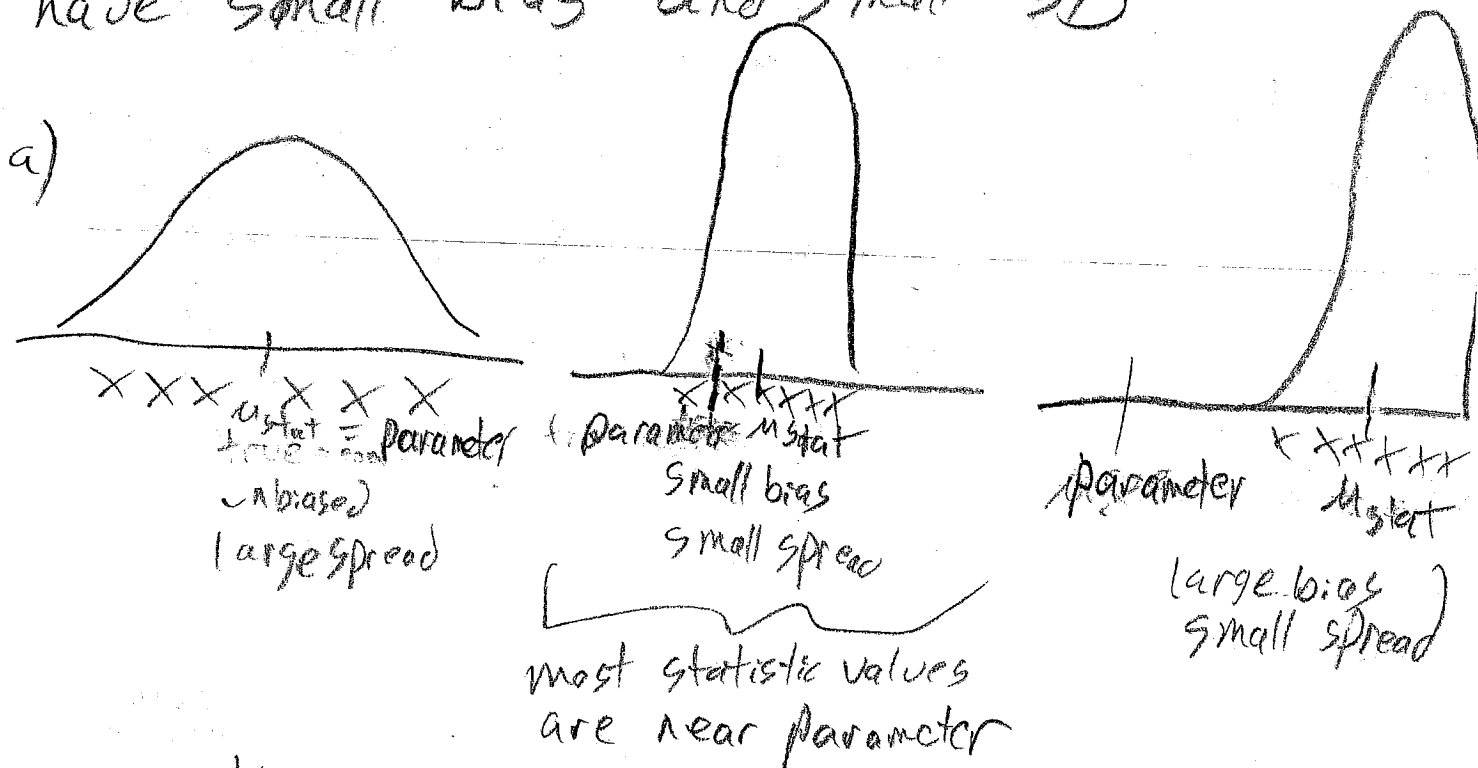 have small bias and small SD
a)
X X X X X X
μstat = parameter
unbiased
large spread
X X X X X X
parameter μstat
small bias
small spread
most statistic values
are near parameter
X X X X X X
parameter μstat
large bias
small spread